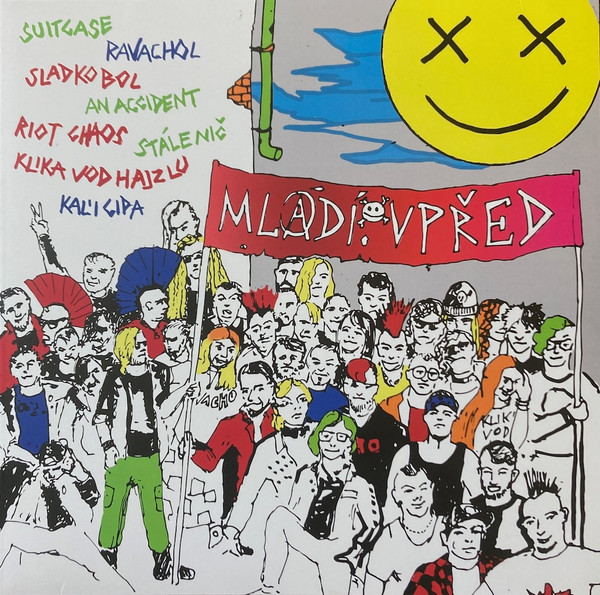 SUITCASE
RAVACHOL
SLADKOBOL
AN ACCIDENT
RIOT CHAOS
STÁLE NIČ
KLIKA VOD HAJZLU
KALIGIDA
MLADÍ VPŘED
VACHO
KLIK
VOD